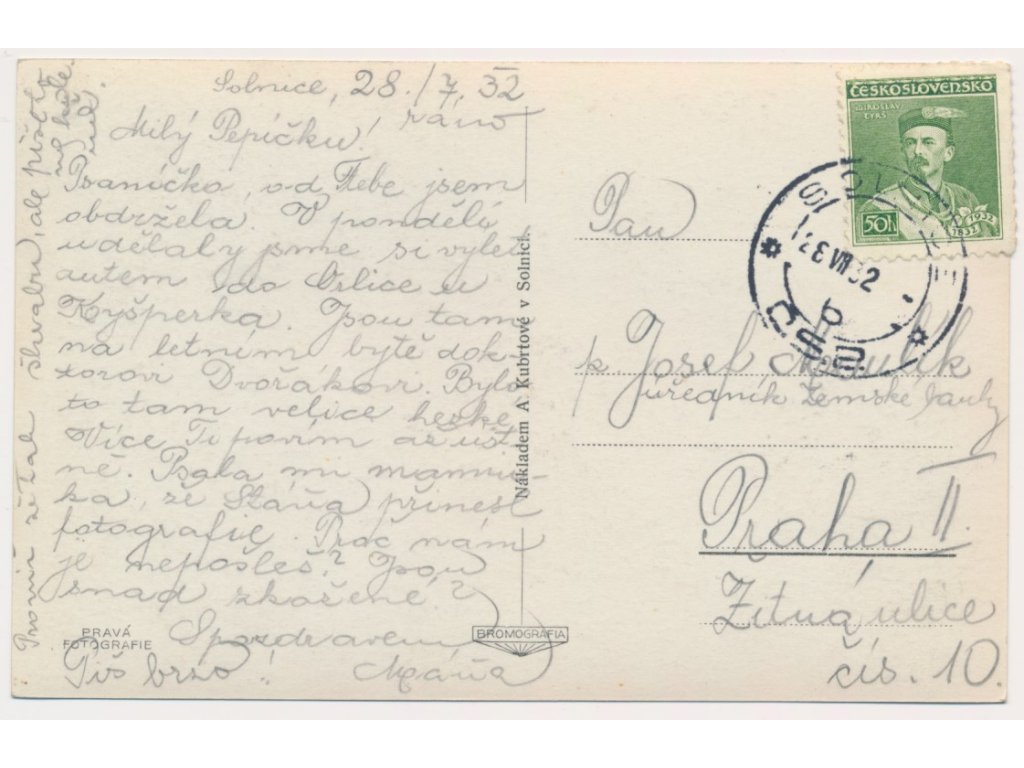 Solnice, 28./7. 32
ráno
Milý Pepíčku!
Psaníčko od Tebe jsem
obdržela. V pondělí
udělaly jsme si výlet
autem do Orlice u
Kyšperka. Jsou tam
na letním bytě dok-
torovi Dvořákovi. Bylo
to tam velice hezké.
Více Ti povím až úst-
ně. Psala mi mamin-
ka, že Stáňa přinesl
fotografie. Proč nám
je nepošleš? Jsou
snad zkažené?
S pozdravem
Piš brzo! Máňa
Promiň že tak škrabu, ale příště
už bude
PRAVÁ
FOTOGRAFIE
BROMOGRAFIA
Nákladem A. Kubrtové v Solnici.
ČESKOSLOVENSKO
MIROSLAV
TYRŠ
50h
1832
1932
SOLNICE
28.VII.32
b
ČSR
Pan
p. Josef
úředník Zemské banky
Praha II.
Žitná ulice
čís. 10.